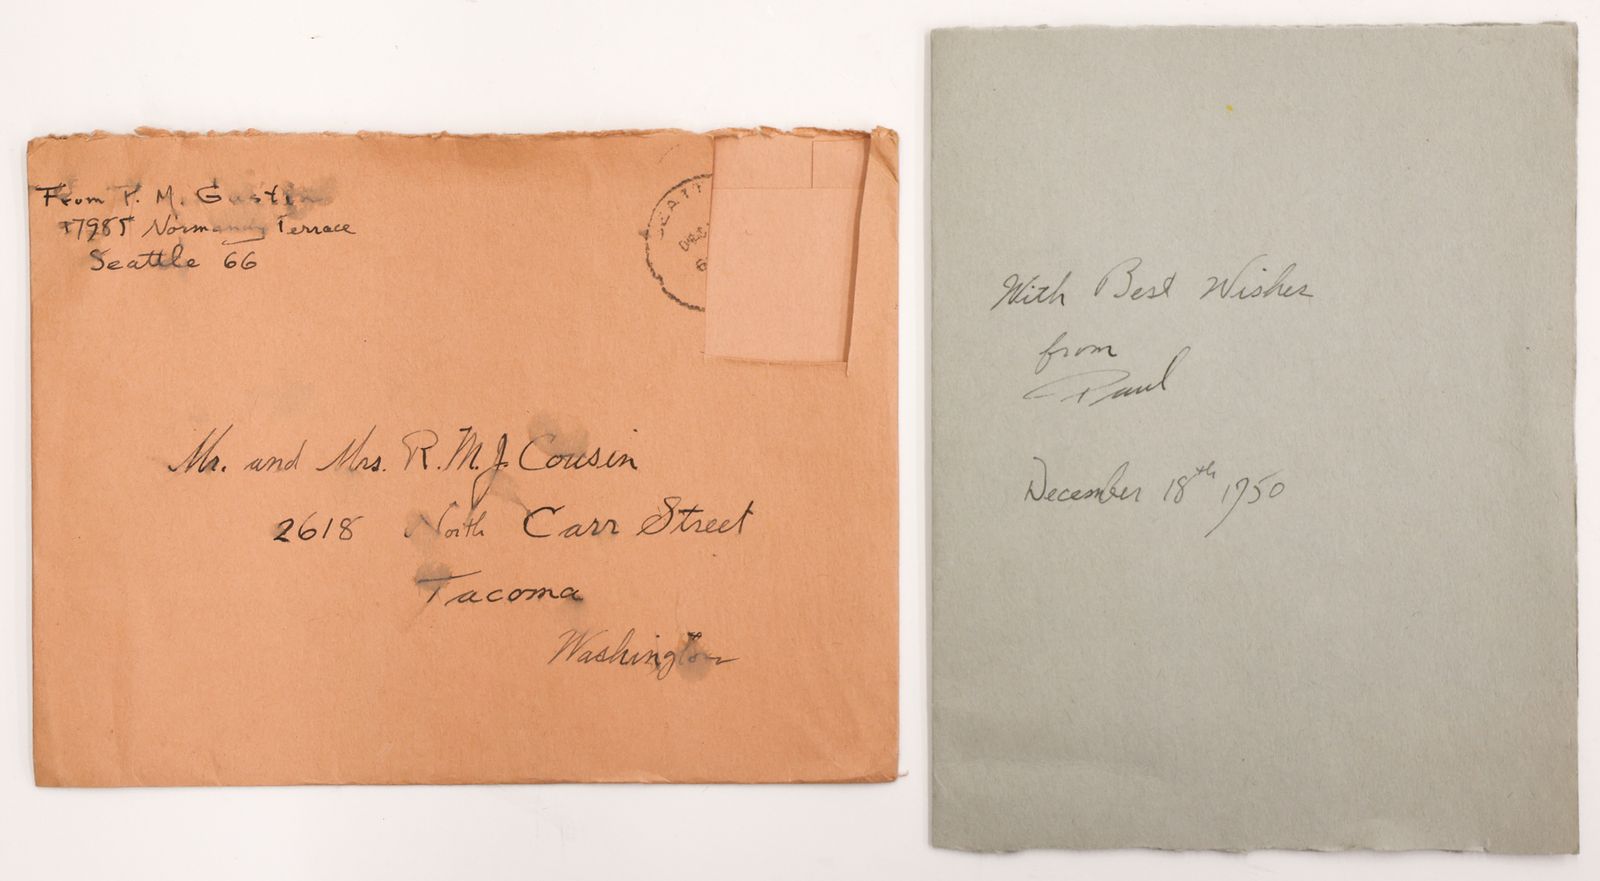 From P. M. Gustin
Normandy Terrace
Seattle 66
SEATT
DEC
6
Mr. and Mrs. R. M. J. Cousin
2618 North Carr Street
Tacoma
Washington
With Best Wishes
from
Paul
December 18th 1950